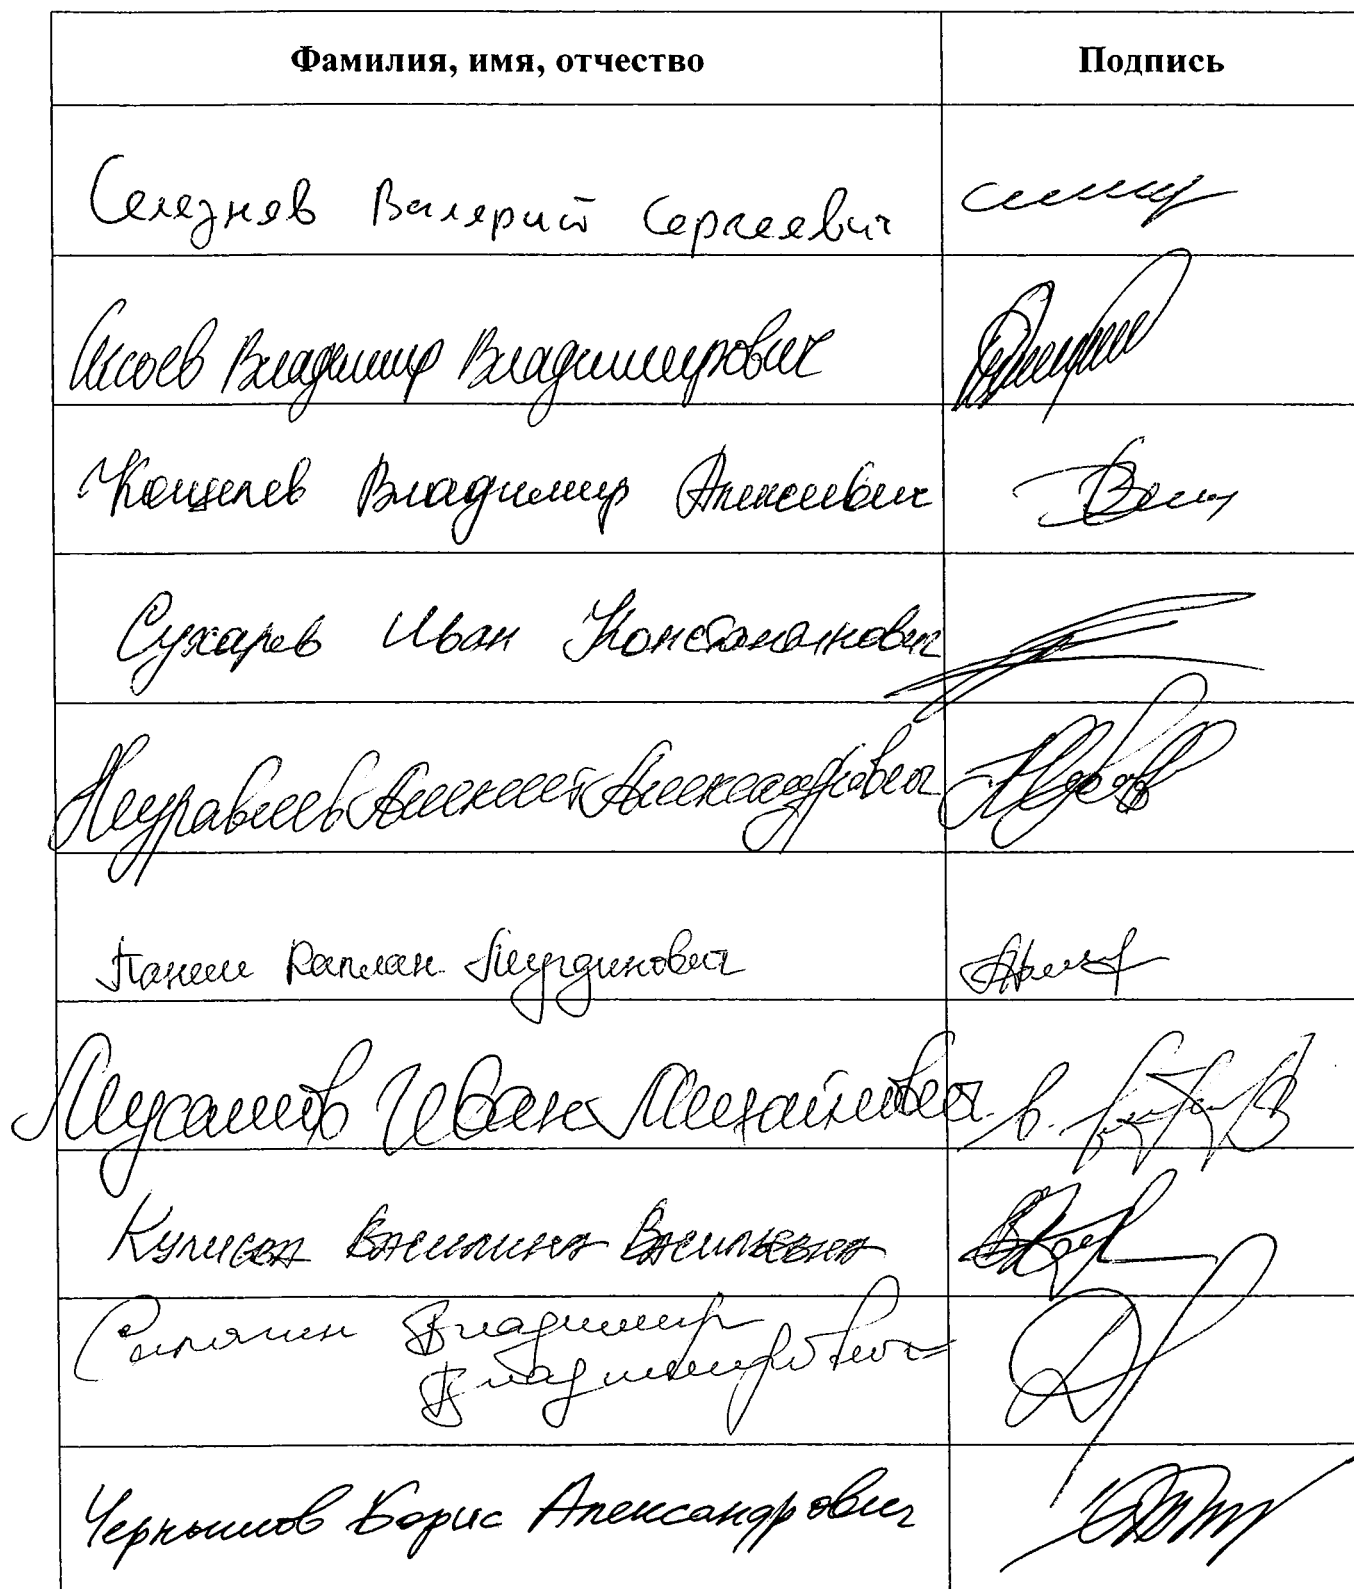 Фамилия, имя, отчество Подпись
Селезнев Валерий Сергеевич
Сысоев Владимир Владимирович
Кошелев Владимир Алексеевич
Сухарев Иван Константинович
Журавлев Алексей Александрович
Панеш Каплан Мугдинович
Мусатов Иван Михайлович
Кулиева Василина Васильевна
Сипягин Владимир
Владимирович
Чернышов Борис Александрович